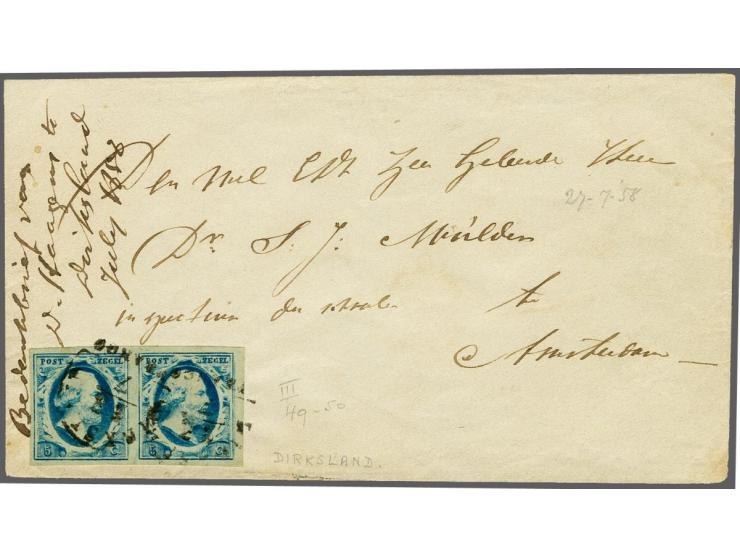 Den Wel Edl Zeer Geleerde Heer
27-7-'58
Dr. S: J: Mulder
inspecteur der scholen
te
Amsterdam
Bedankbrief van
D. Haagens te
Dirksland
July 1858
POST ZEGEL
5 C.
POST ZEGEL
5 C.
III
49-50
DIRKSLAND.